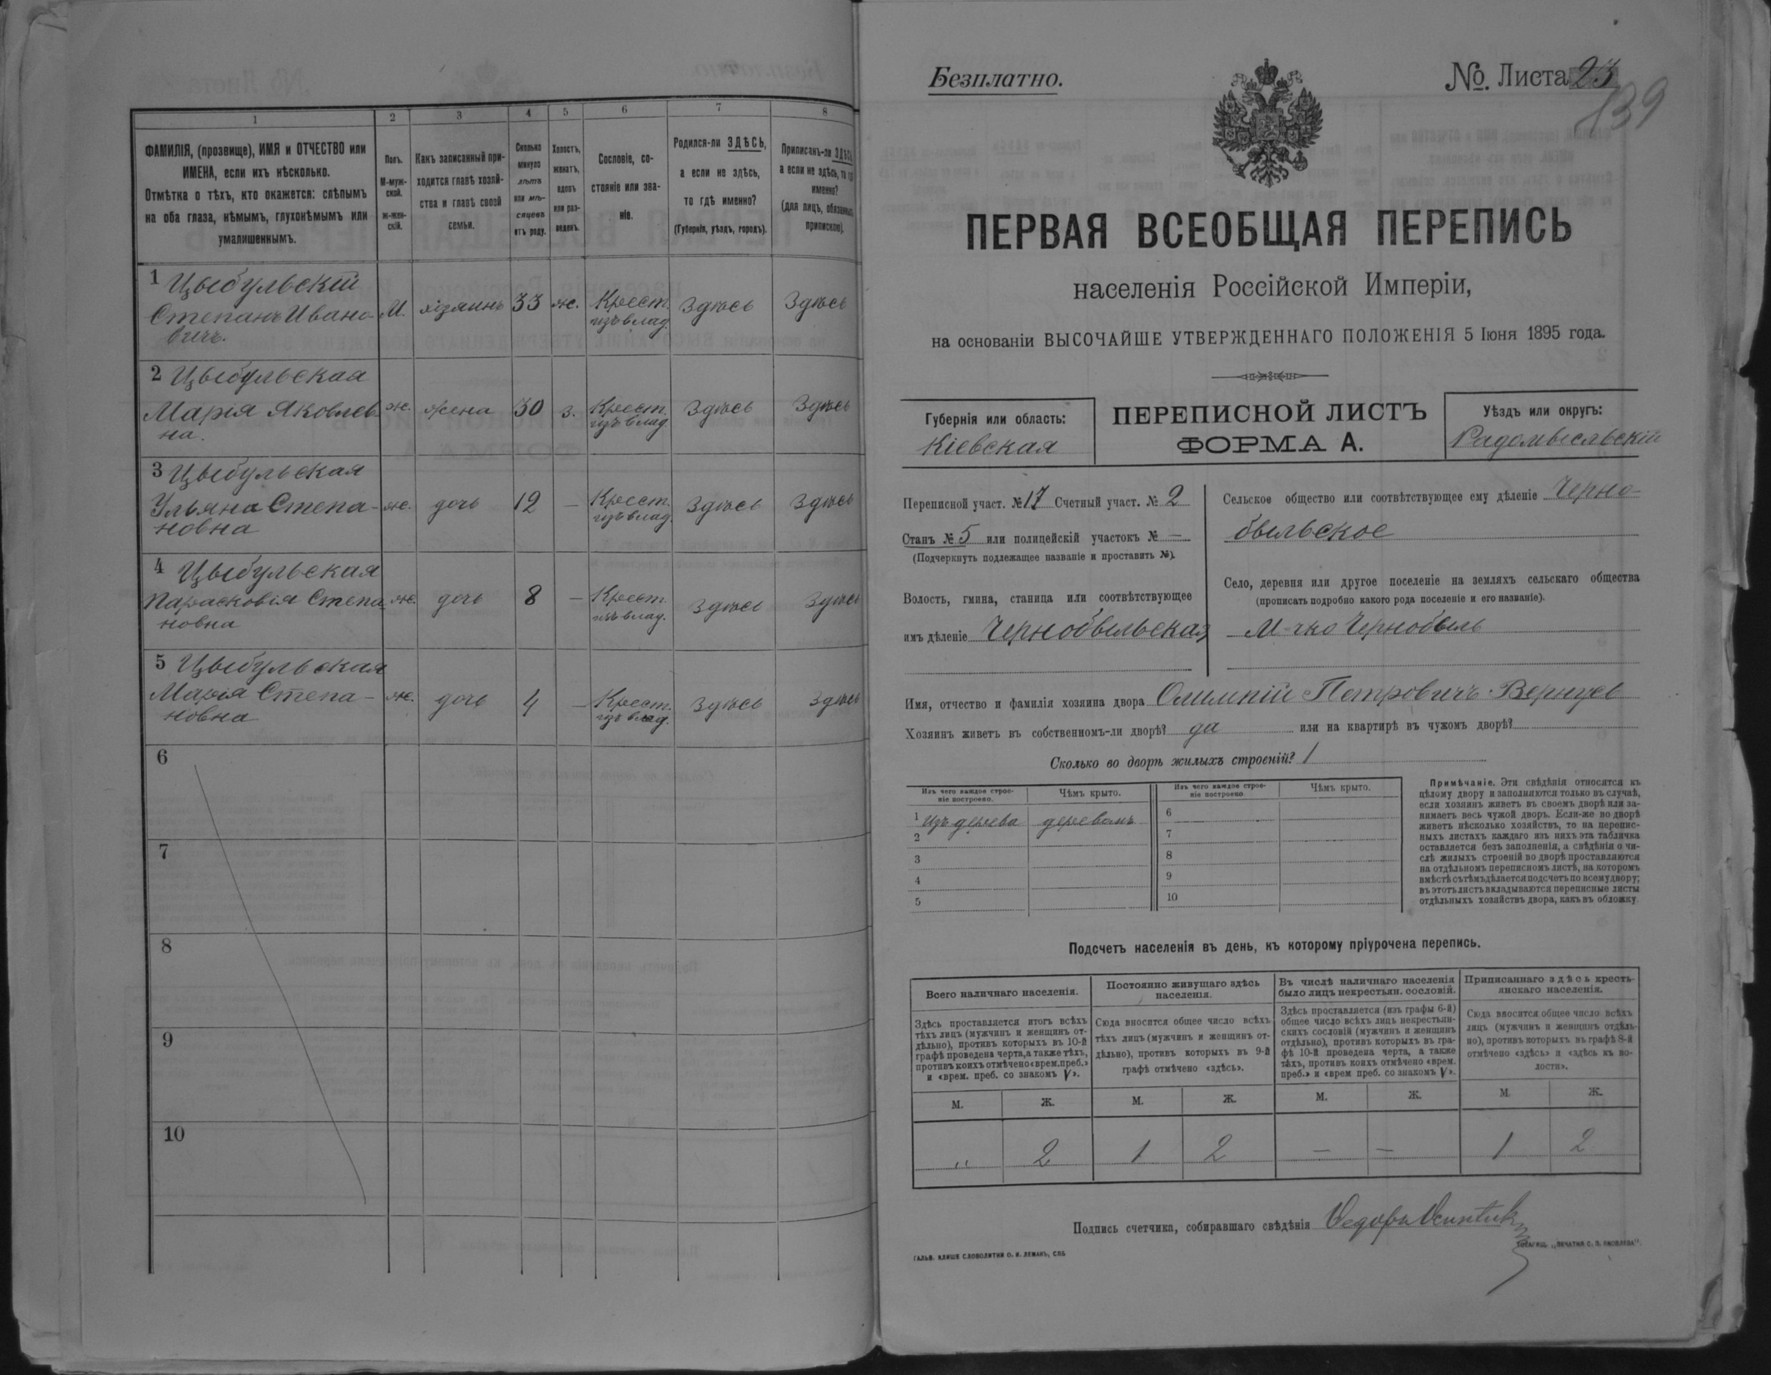 1 2 3 4 5 6 7 8
ФАМИЛІЯ, (прозвище), ИМЯ и ОТЧЕСТВО или
ИМЕНА, если ихъ нѣсколько.
Отмѣтка о тѣхъ, кто окажется: слѣпымъ
на оба глаза, нѣмымъ, глухонѣмымъ или
умалишеннымъ.
Полъ.
М-муж-
ской.
ж-жен-
скій.
Какъ записанный при-
ходится главѣ хозяй-
ства и главѣ своей
семьи.
Сколько
минуло
лѣтъ
или мѣ-
сяцевъ
отъ роду.
Холостъ,
женатъ,
вдовъ
или раз-
веденъ.
Сословіе, со-
стояніе или зва-
ніе.
Родился-ли ЗДѢСЬ,
а если не здѣсь,
то гдѣ именно?
(Губернія, уѣздъ, городъ).
Приписанъ-ли ЗДѢСЬ
а если не здѣсь, то гдѣ
именно?
(для лицъ, обязанныхъ
припискою).
1 Цыбульскій
Степанъ Ивано-
вичъ. М. хозяинъ 33 ж. Крест. изъ влад. Здѣсь Здѣсь
2 Цыбульская
Марія Яковлев-
на. ж. жена 30 з. Крест. изъ влад. Здѣсь Здѣсь
3 Цыбульская
Ульяна Степа-
новна ж. дочь 12 — Крест. изъ влад. Здѣсь Здѣсь
4 Цыбульская
Парасковія Степа
новна ж. дочь 8 — Крест. изъ влад. Здѣсь Здѣсь
5 Цыбульская
Марія Степа-
новна ж. дочь 4 — Крест. изъ влад. Здѣсь Здѣсь
6
7
8
9
10
Безплатно.
№. Листа 23
139
ПЕРВАЯ ВСЕОБЩАЯ ПЕРЕПИСЬ
населенія Россійской Имперіи,
на основаніи ВЫСОЧАЙШЕ УТВЕРЖДЕННАГО ПОЛОЖЕНІЯ 5 Іюня 1895 года.
Губернія или область:
Кіевская
ПЕРЕПИСНОЙ ЛИСТЪ
ФОРМА А.
Уѣздъ или округъ:
Радомысльскій
Переписной участ. № 17 Счетный участ. № 2
Станъ № 5 или полицейскій участокъ № —
(Подчеркнуть подлежащее названіе и проставить №).
Волость, гмина, станица или соотвѣтствующее
имъ дѣленіе Чернобыльская
Сельское общество или соотвѣтствующее ему дѣленіе Черно-
быльское
Село, деревня или другое поселеніе на земляхъ сельскаго общества
(прописать подробно какого рода поселеніе и его названіе).
М-чко Чернобыль
Имя, отчество и фамилія хозяина двора Олимпій Петровичъ
Хозяинъ живетъ въ собственномъ-ли дворѣ? да или на квартирѣ въ чужомъ дворѣ?
Сколько во дворѣ жилыхъ строеній? 1
Изъ чего каждое строе-
ніе построено.
Чѣмъ крыто.
Изъ чего каждое строе-
ніе построено.
Чѣмъ крыто.
1 изъ дерева деревомъ 6
2 7
3 8
4 9
5 10
Примѣчаніе. Эти свѣдѣнія относятся къ
цѣлому двору и заполняются только въ случаѣ,
если хозяинъ живетъ въ своемъ дворѣ или за-
нимаетъ весь чужой дворъ. Если-же во дворѣ
живетъ нѣсколько хозяйствъ, то на перепис-
ныхъ листахъ каждаго изъ нихъ эта табличка
оставляется безъ заполненія, а свѣдѣнія о чи-
слѣ жилыхъ строеній во дворѣ проставляются
на отдѣльномъ переписномъ листѣ, на которомъ
вмѣстѣ съ тѣмъ дѣлается подсчетъ по всему двору;
въ этотъ листъ вкладываются переписные листы
отдѣльныхъ хозяйствъ двора, какъ въ обложку.
Подсчетъ населенія въ день, къ которому пріурочена перепись.
Всего наличнаго населенія.
Постоянно живущаго здѣсь
населенія.
Въ числѣ наличнаго населенія
было лицъ некрестьян. сословій.
Приписаннаго здѣсь кресть-
янскаго населенія.
Здѣсь проставляется итогъ всѣхъ
тѣхъ лицъ (мужчинъ и женщинъ от-
дѣльно), противъ которыхъ въ 10-й
графѣ проведена черта, а также тѣхъ,
противъ коихъ отмѣчено «врем. преб.»
и «врем. преб. со знакомъ V».
Сюда вносится общее число всѣхъ
тѣхъ лицъ (мужчинъ и женщинъ от-
дѣльно), противъ которыхъ въ 9-й
графѣ отмѣчено «здѣсь».
Здѣсь проставляется (изъ графы 6-й)
общее число всѣхъ лицъ некрестьян-
скихъ сословій (мужчинъ и женщинъ
отдѣльно), противъ которыхъ въ гра-
фѣ 10-й проведена черта, а также
тѣхъ, противъ коихъ отмѣчено «врем.
преб.» и «врем преб. со знакомъ V».
Сюда вносится общее число всѣхъ
лицъ (мужчинъ и женщинъ отдѣль-
но), противъ которыхъ въ графѣ 8-й
отмѣчено «здѣсь» и «здѣсь къ во-
лости».
М. Ж. М. Ж. М. Ж. М. Ж.
„ 2 1 2 — — 1 2
Подпись счетчика, собиравшаго свѣдѣнія
ГАЛЬВ. КЛИШЕ СЛОВОЛИТНИ О. И. ЛЕМАНЪ, СПБ